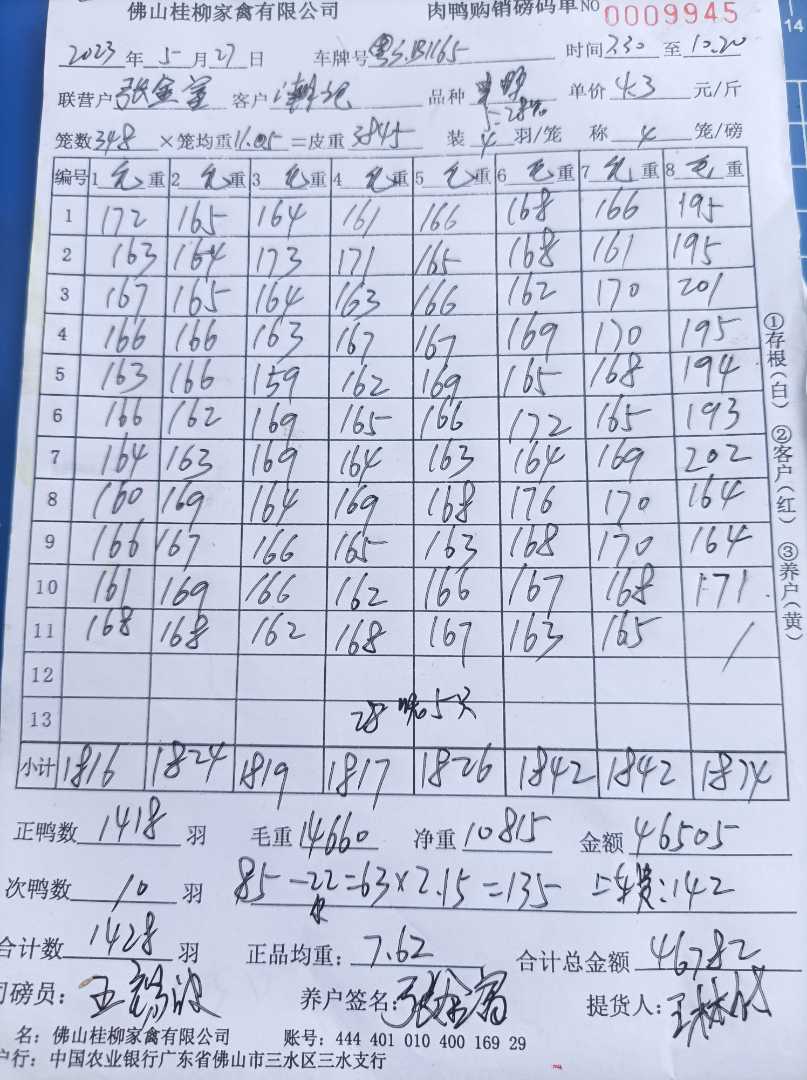 佛山桂柳家禽有限公司 肉鸭购销磅码单 NO 0009945
2023年5月27日 车牌号 时间3.30至10.20
联营户 客户 品种 单价4.3元/斤
5.28晚
笼数348×笼均重11.05=皮重3845 装4羽/笼 称4笼/磅
编号 1毛重 2毛重 3毛重 4毛重 5毛重 6毛重 7毛重 8毛重
1 172 165 164 161 166 168 166 195
2 163 164 173 171 165 168 161 195
3 167 165 164 163 166 162 170 201
4 166 166 163 167 167 169 170 195
5 163 166 159 162 169 165 168 194
6 166 162 169 165 166 172 165 193
7 164 163 169 164 163 164 169 202
8 160 169 164 169 168 176 170 164
9 166 167 166 165 163 168 170 164
10 161 169 166 162 166 167 168 171
11 168 168 162 168 167 163 165 /
12
13 28晚5只
小计 1816 1824 1819 1817 1826 1842 1842 1874
正鸭数1418羽 毛重14660 净重10815 金额46505
次鸭数10羽 85-22=63×2.15=135 上车费:142
合计数1428羽 正品均重:7.62 合计总金额46782
司磅员: 养户签名: 提货人:
名:佛山桂柳家禽有限公司 账号:444 401 010 400 169 29
户行:中国农业银行广东省佛山市三水区三水支行
①存根(白) ②客户(红) ③养户(黄)
14